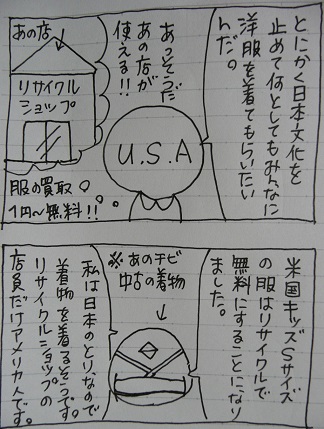 とにかく日本文化を
止めて何としてもみんなに
洋服を着てもらいたい
んだ。
あっそうだ
あの店が
使える!!
あの店
リサイクル
ショップ
U.S.A
服の買取
1円〜無料!!
米国キッズSサイズ
の服はリサイクルで
無料にすることになり
ました。
※あのチビ
中古の着物
私は日本のとりなので
着物を着るそうです。
リサイクルショップの
店員だけアメリカ人です。